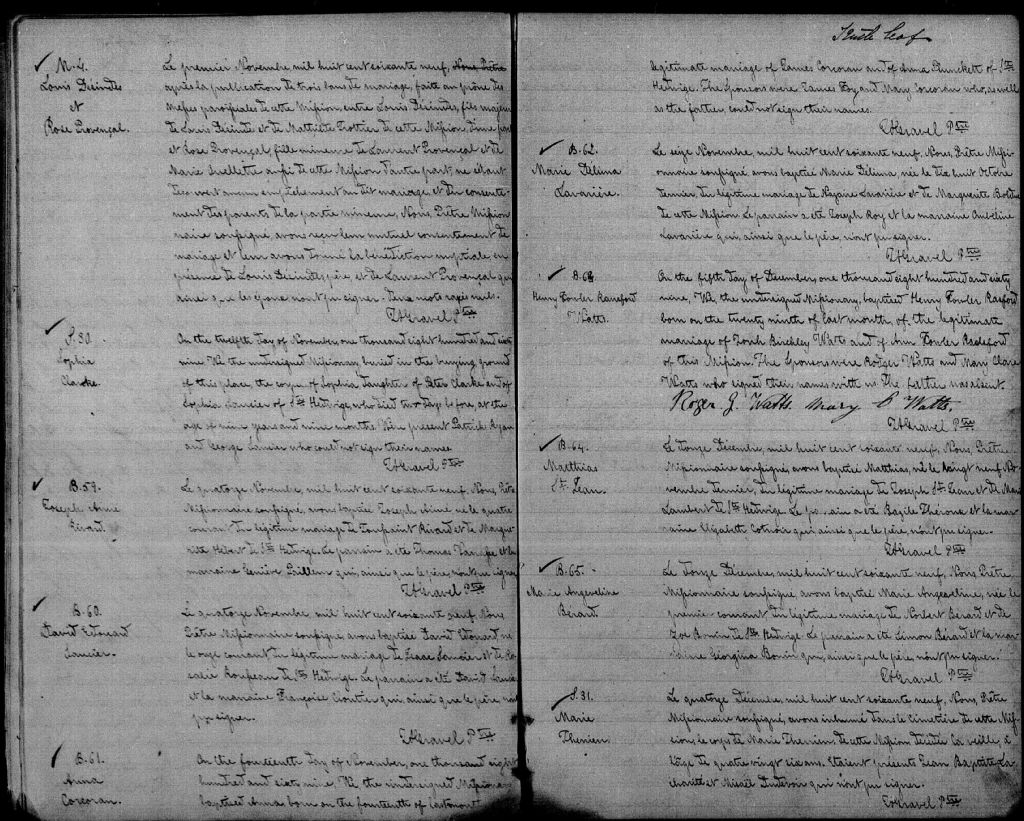 M. 4.
Louis Décindes
et
Rose Provençal.
Le premier Novembre mil huit cent soixante neuf,
après la publication de trois bans de mariage, faite au prône des
Messes paroissiales de cette Mission, entre Louis Décindes, fils majeur
de Louis Décinde et de Mathilde Trottier de cette Mission d'une part
et Rose Provençal, fille mineure de Laurent Provençal et de
Marie Ouellette aussi de cette Mission d'autre part; ne s'étant
découvert aucun empêchement au dit mariage et du consente-
ment des parents de la partie mineure, Nous, Prêtre Mission
naire soussigné, avons reçu leur mutuel consentement de
mariage et leur avons donné la bénédiction nuptiale en
présence de Louis Décinde, père, et de Laurent Provençal qui
ainsi que les époux n'ont pu signer. Deux mots rayés nuls.
Gravel Ptre
S. 30.
Sophia
Clarke.
On the twelfth day of November, one thousand eight hundred and sixty
nine We the undersigned Missionary buried in the burying ground
of this place, the corpse of Sophia daughter of Peter Clarke and of
Sophia Lancier of Ste Hedwige who died two days before, at the
age of nine years and nine months. Were present Patrick Ryan
and George Lancier who could not sign their names
Gravel Ptre
B. 59.
Joseph Aimé
Ricard.
Le quatorze Novembre, mil huit cent soixante neuf, Nous, Prêtre
Missionnaire soussigné, avons baptisé Joseph Aimé né le quatre
courant du légitime mariage de Toussaint Ricard et de Margue-
rite Hébert de Ste Hedwige. Le parrain a été Thomas et la
marraine qui, ainsi que le père, n'ont pu signer.
Gravel Ptre
B. 60.
David Edouard
Lancier.
Le quatorze Novembre mil huit cent soixante neuf, Nous
Prêtre Missionnaire soussigné, avons baptisé David Edouard né
le onze courant du légitime mariage de Isaac Lancier et de Ro-
salie Rousseau de Ste Hedwige. Le parrain a été David Lancier
et la marraine Françoise Cloutier qui, ainsi que le père n'ont
pu signer.
Gravel Ptre
B. 61.
Anna
Corcoran.
On the fourteenth day of November, one thousand eight
hundred and sixty nine. We the undersigned Missionary
baptised Anna born on the fourteenth of last month
Tenth leaf
legitimate marriage of James Corcoran and of Anna Plunckett of Ste
Hedwige. The Sponsors were James Foy and Mary Corcoran who, as well
as the father, could not sign their names.
Gravel Ptre
B. 62.
Marie Délima
Lavarière.
Le seize Novembre, mil huit cent soixante neuf, Nous, Prêtre Missi-
onnaire soussigné, avons baptisé Marie Délima, née le dix huit Octobre
dernier, du légitime mariage de Nazaire Lavarière et de Marguerite Bolduc
de cette Mission. Le parrain a été Joseph Roy et la marraine
Lavarière qui, ainsi que le père, n'ont pu signer.
Gravel Ptre
B. 63.
Henry Fowler Raneford
Watts.
On the fifth day of December, one thousand eight hundred and sixty
nine, We, the undersigned Missionary, baptised Henry Fowler
born on the twenty ninth of last month, of the legitimate
marriage of Binchley Watts and of Ann Fowler
of this Mission. The Sponsors were Rodger Watts and Mary Clare
Watts who signed their names with us. The father was absent.
Roger G. Watts. Mary C Watts.
Gravel Ptre
B. 64.
Matthias
St. Jean.
Le douze Décembre, mil huit cent soixante neuf, Nous, Prêtre
Missionnaire soussigné, avons baptisé Matthias, né le vingt neuf No-
vembre dernier, du légitime mariage de Joseph St Jean et de Marie
Lambert de Ste Hedwige. Le parrain a été Bazile Théroux et la mar-
raine Elizabeth Cotnoir qui, ainsi que le père, n'ont pu signer.
Gravel Ptre
B. 65.
Marie Angeveline
Bérard.
Le douze Décembre, mil huit cent soixante neuf, Nous, Prêtre
Missionnaire soussigné, avons baptisé Marie Angeveline, née le
premier courant du légitime mariage de Norbert Bérard et de
Zoé Bonin de Ste Hedwige. Le parrain a été Simon Bérard et la mar-
raine Georgina Bonin qui, ainsi que le père, n'ont pu signer.
Gravel Ptre
S. 31.
Marie
Therrien.
Le quatorze Décembre, mil huit cent soixante neuf, Nous, Prêtre
Missionnaire soussigné, avons inhumé dans le cimetière de cette Mis-
sion, le corps de Marie Therrien, de cette Mission décédée la veille, à
l'âge de quatre vingt six ans. Etaient présents Jean Baptiste La-
charité et Misaël qui n'ont pu signer.
Gravel Ptre